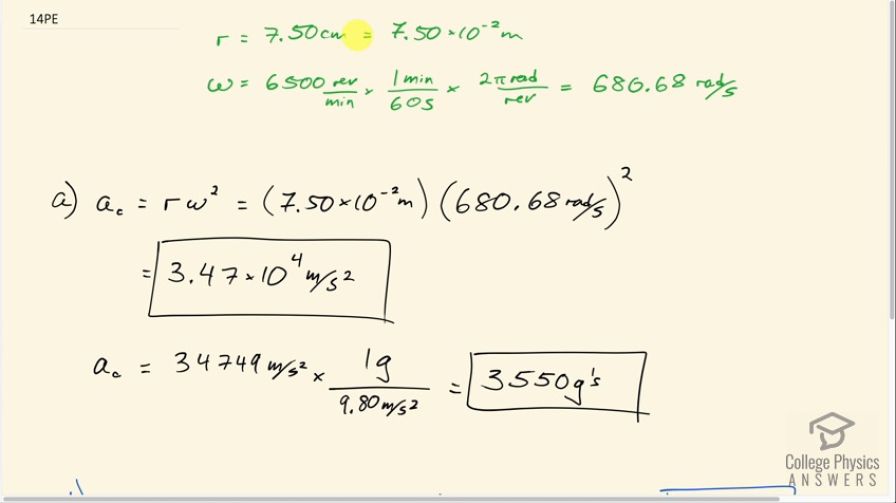 14PE
r = 7.50cm = 7.50×10⁻²m
ω = 6500 rev/min × 1min/60s × 2π rad/rev = 680.68 rad/s
a) a_c = rω² = (7.50×10⁻²m)(680.68 rad/s)²
= 3.47×10⁴ m/s²
a_c = 34749 m/s² × 1g/9.80 m/s² = 3550g's
College Physics
ANSWERS